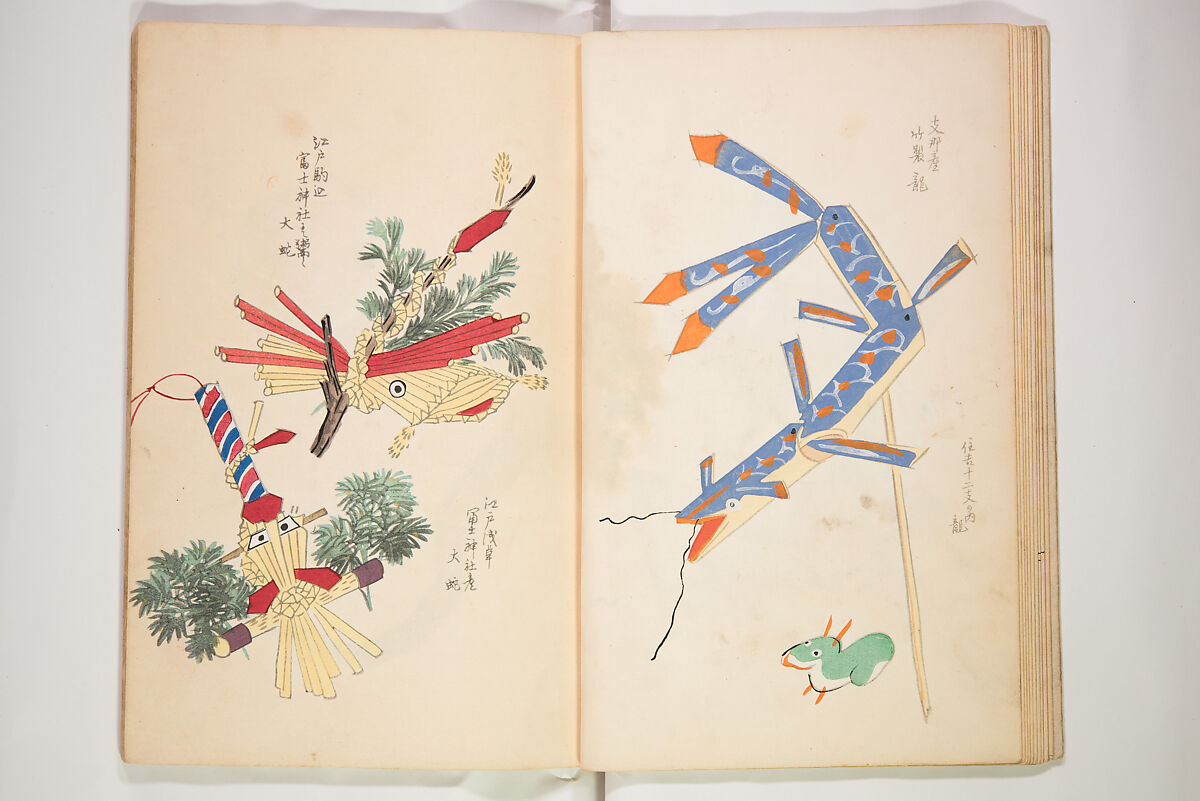 支那産
竹製 龍
住吉十二支の内
龍
江戸駒込
富士神社之
大蛇
江戸浅草
富士神社産
大蛇